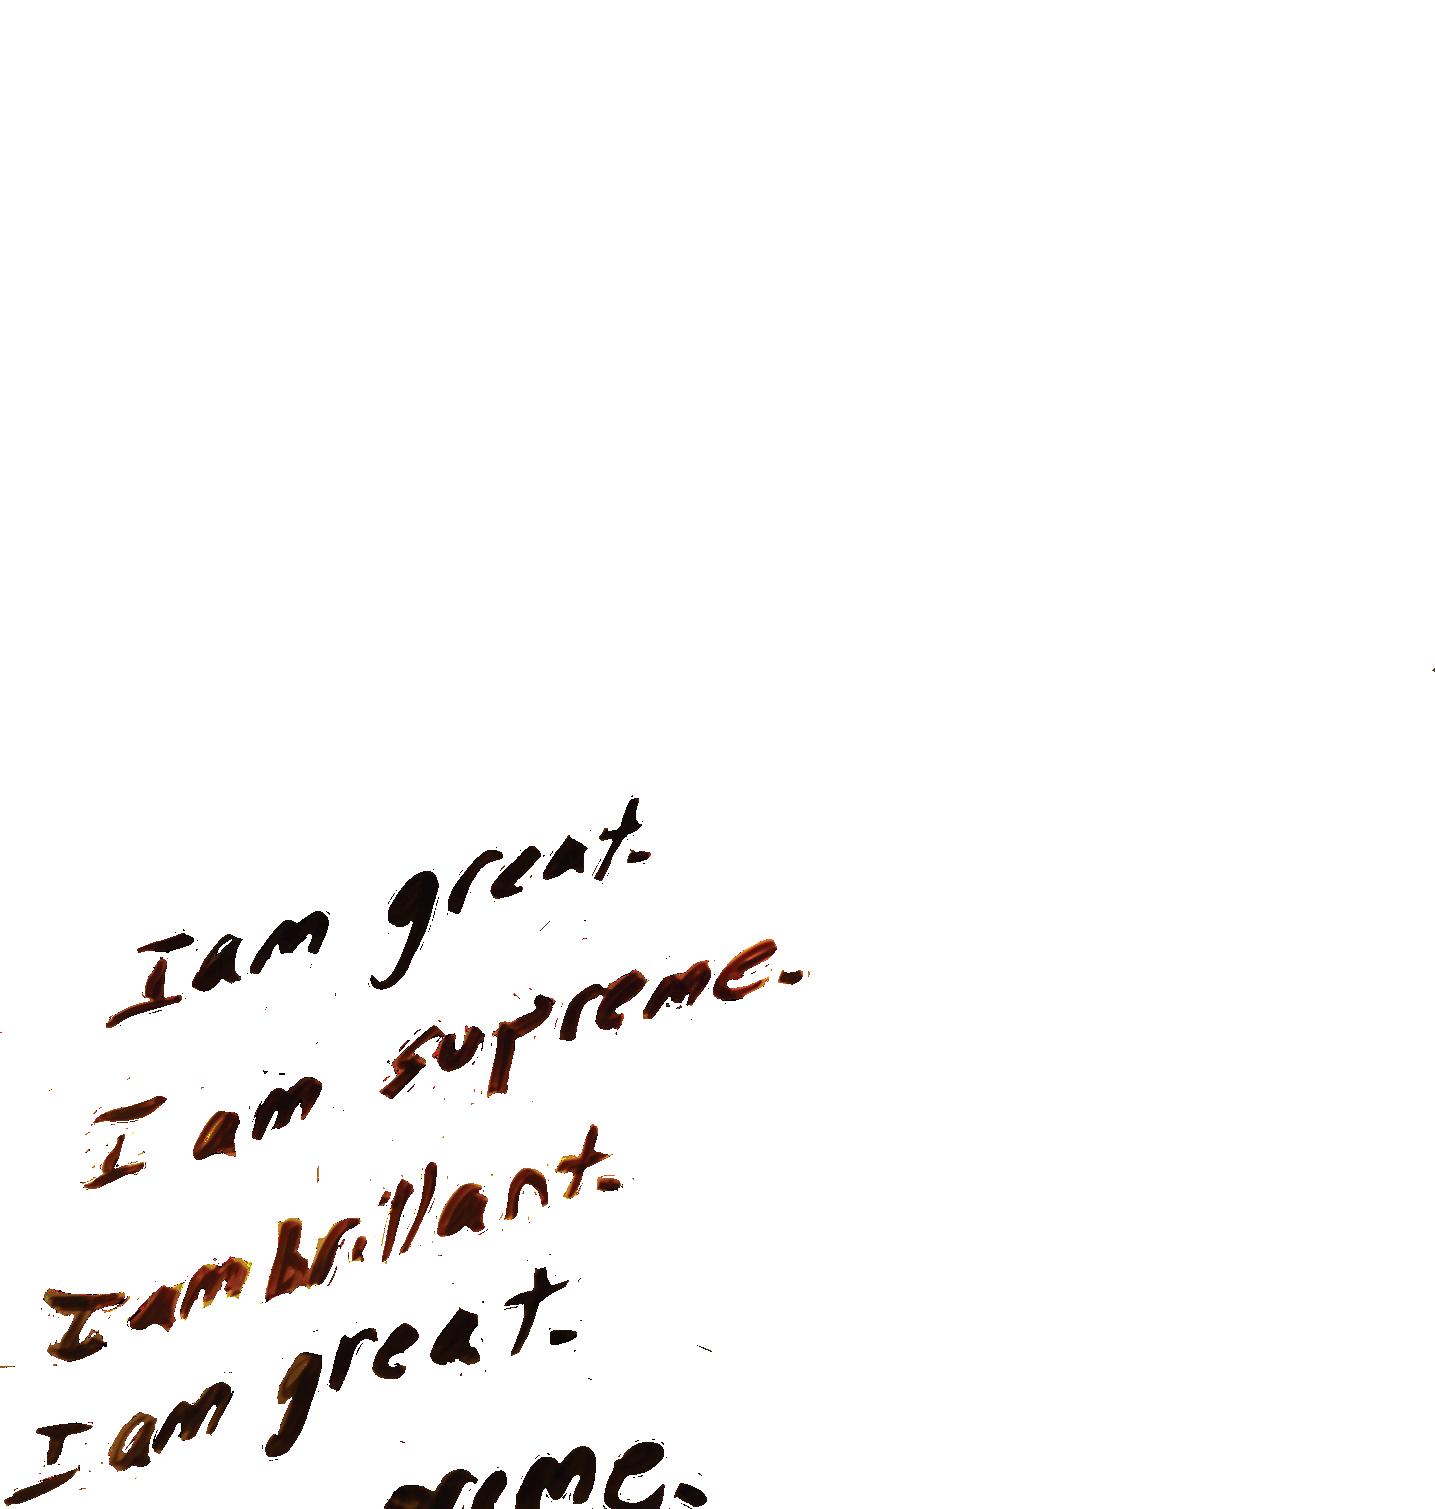 I am great.
I am supreme.
I am brillant.
I am great.